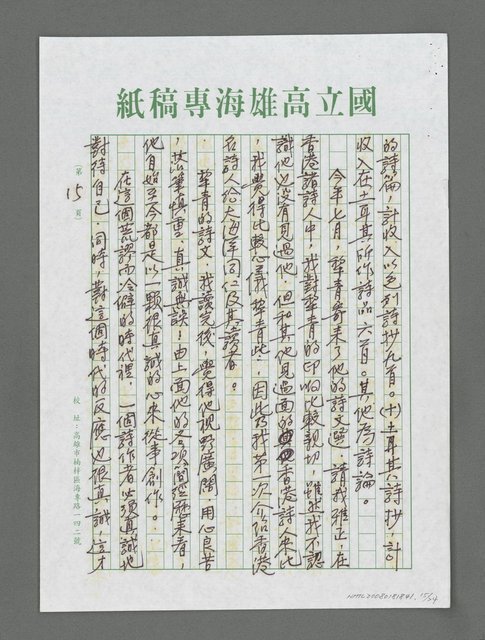 國立高雄海專稿紙
的詩論，計收入以色列詩抄九首。（十）土耳其詩抄，計
收入在土耳其所作詩品六首。其他為詩論。
今年七月，犂青寄來了他的詩文選，請我雅正，在
香港諸詩人中，我對犂青的印响比較親切，雖然我不認
識他也沒有見過他，但和其他見過面的香港詩人來比
，我覺得比較心儀犂青些，因此我第一次介紹香港
名詩人給大海洋同仁及其讀者。
犂青的詩文，我讀完後，覺得他視野廣闊，用心良苦
，落筆慎重，真誠無誤！由上面他的各項簡歷來看，
他自始至今都是以一顆很真誠的心來從事創作。
在這個荒謬而冷僻的時代裡，一個詩作者必須真誠地
對待自己，同時，對這個時代的反應也很真誠，這才
（第 15 頁）
校 址：高雄市楠梓區海專路一四二號
NMTL20080181841, 15/24